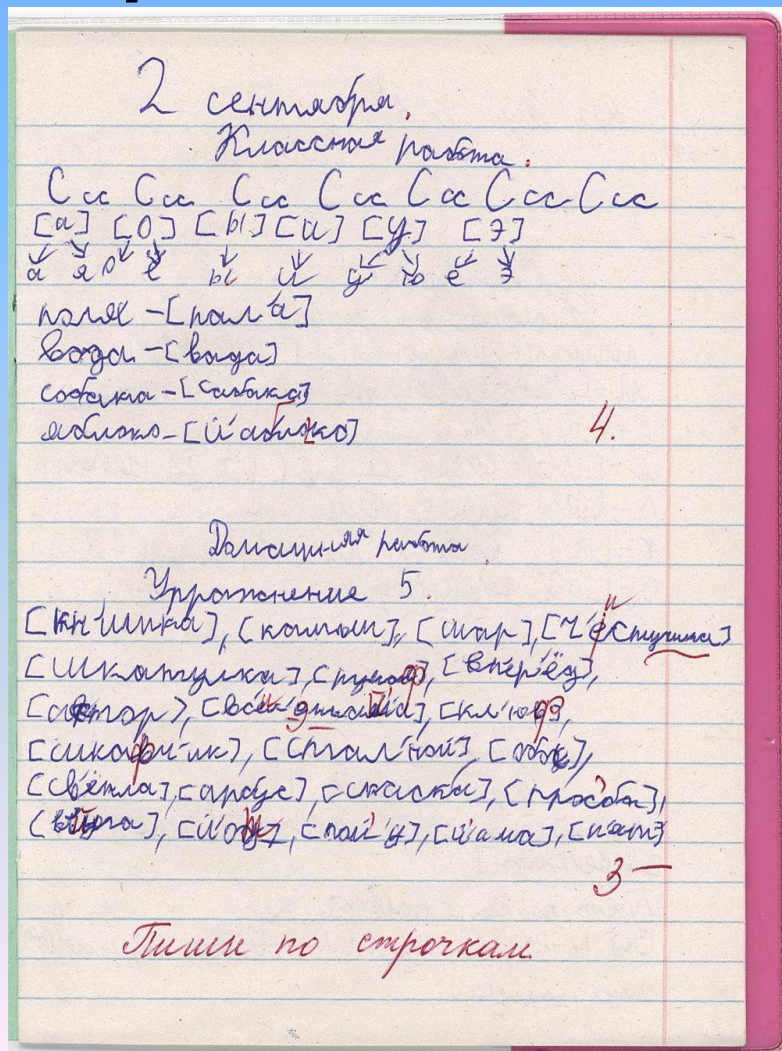 2 сентября.
Классная работа.
С сс С сс С сс С сс С сс С сс С сс
[а] [о] [ы] [и] [у] [э]
а я о ё ы и у ю е э
поля - [пал'а]
вода - [вада]
собака - [сабака]
яблоко - [й'аблоко] 4.
Домашняя работа.
Упражнение 5.
[кн'ишка], [камыш], [шар], [ч'
[шкатулка], [вп'ер'ёд],
[автор], [кл'
[шкаф'ч'ик], [стал'ной],
[св'екла], [арбус], [скаска], [прос'ба],
[пой'у], [й'ама], [п'ат']
3 —
Пиши по строчкам.